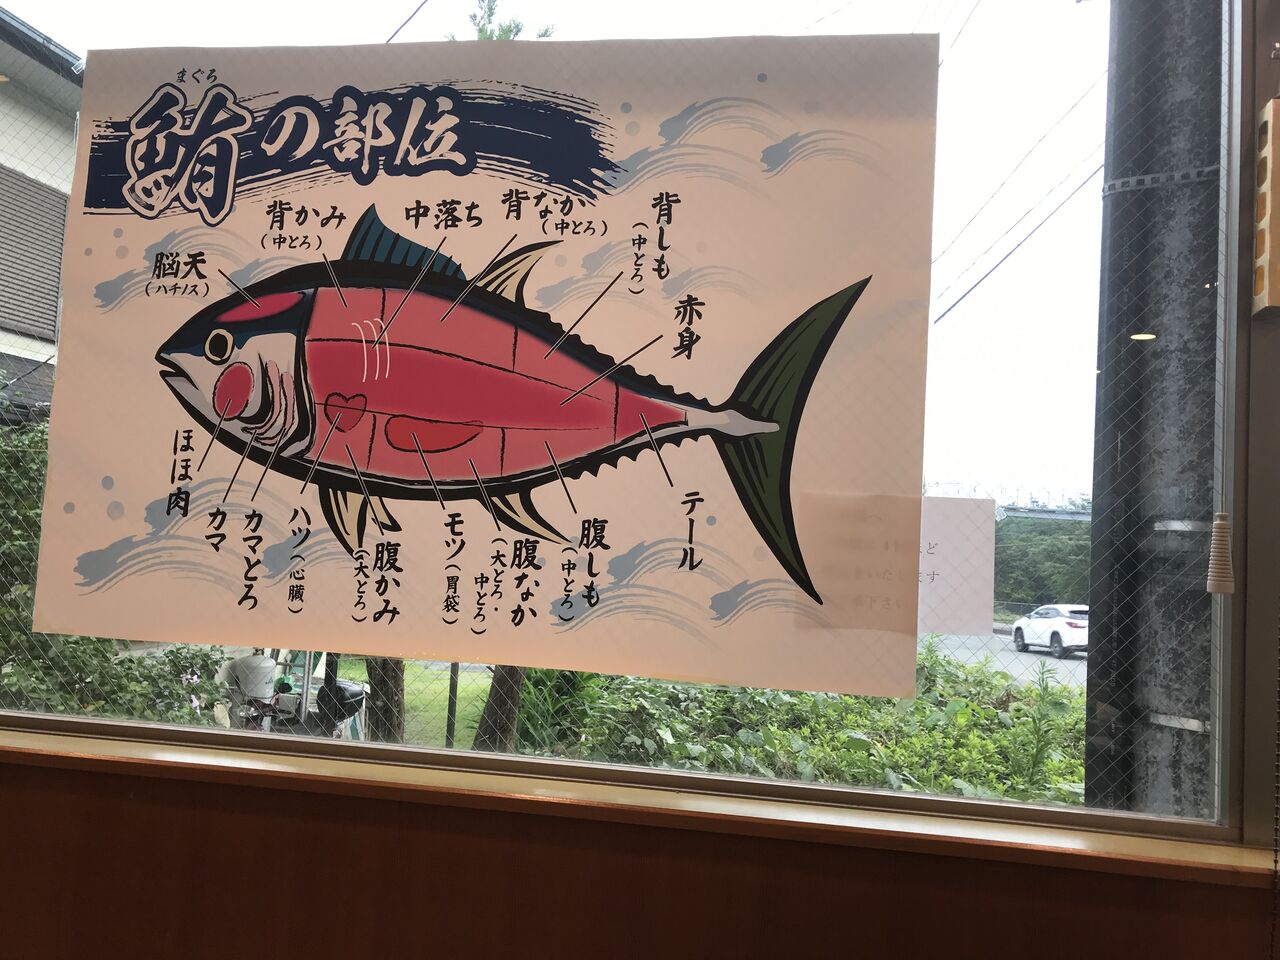 まぐろ
鮪の部位
背かみ
(中とろ)
中落ち
背なか
(中とろ)
背しも
(中とろ)
脳天
(ハチノス)
赤身
ほほ肉
カマ
カマとろ
ハツ(心臓)
腹かみ
(大とろ)
モツ(胃袋)
腹なか
(大とろ・
中とろ)
腹しも
(中とろ)
テール